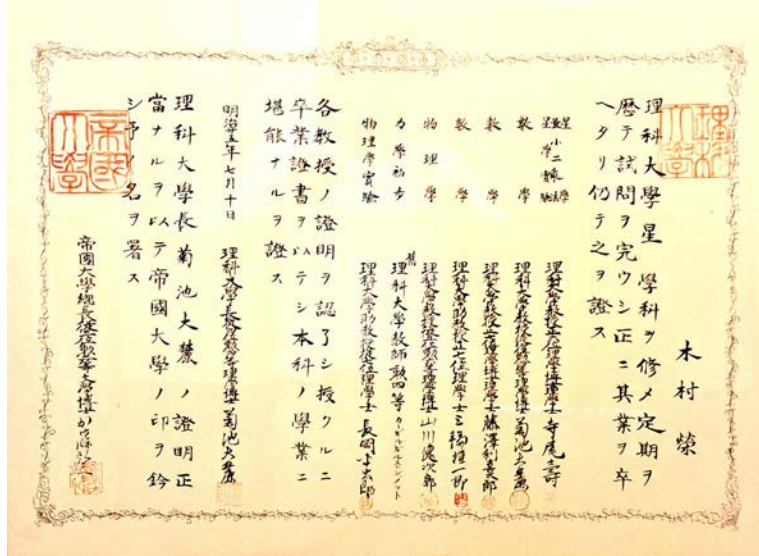 理科大學
木村榮
理科大學星學科ヲ修メ定期ヲ
歷テ試問ヲ完ウシ正ニ其業ヲ卒
ヘタリ仍テ之ヲ證ス
理科大學教授 理學博士寺尾壽
數學 理科大學教授 理學博士菊池大麓
數學 理科大學教授 理學博士藤澤利喜太郎
數學 理科大學助教授正七位理學士三輪桓一郎
物理學 理科大學教授 理學博士山川健次郎
力學初步 舊理科大學教師勳四等カーギルギルストンノット
物理學實驗 理科大學助教授從七位理學士長岡半太郎
各教授ノ證明ヲ認了シ授クルニ
卒業證書ヲ以テシ本科ノ學業ニ
堪能ナルヲ證ス
明治 五年七月十日 理科大學長 理學博士菊池大麓
理科大學長菊池大麓ノ證明正
當ナルヲ以テ帝國大學ノ印ヲ鈐
シ予ノ名ヲ署ス
帝國大學總長 文學博士加藤弘之
帝國大學